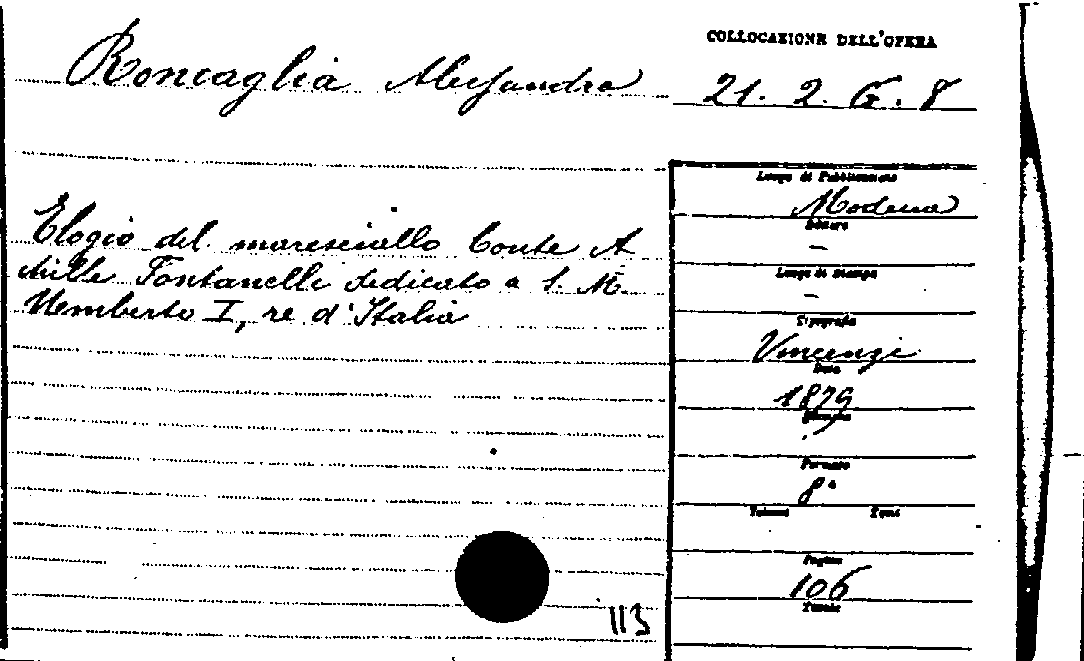 COLLOCAZIONE DELL'OPERA
Roncaglia Alessandro
21. 2. G. 8
Luogo di Pubblicazione
Modena
Editore
—
Elogio del maresciallo Conte A
chille Fontanelli dedicato a S. M.
Umberto I, re d'Italia
Luogo di Stampa
—
Tipografia
Vincenzi
Data
1879
Formato
8°
Volumi Tomi
Pagine
106
Tavole
113